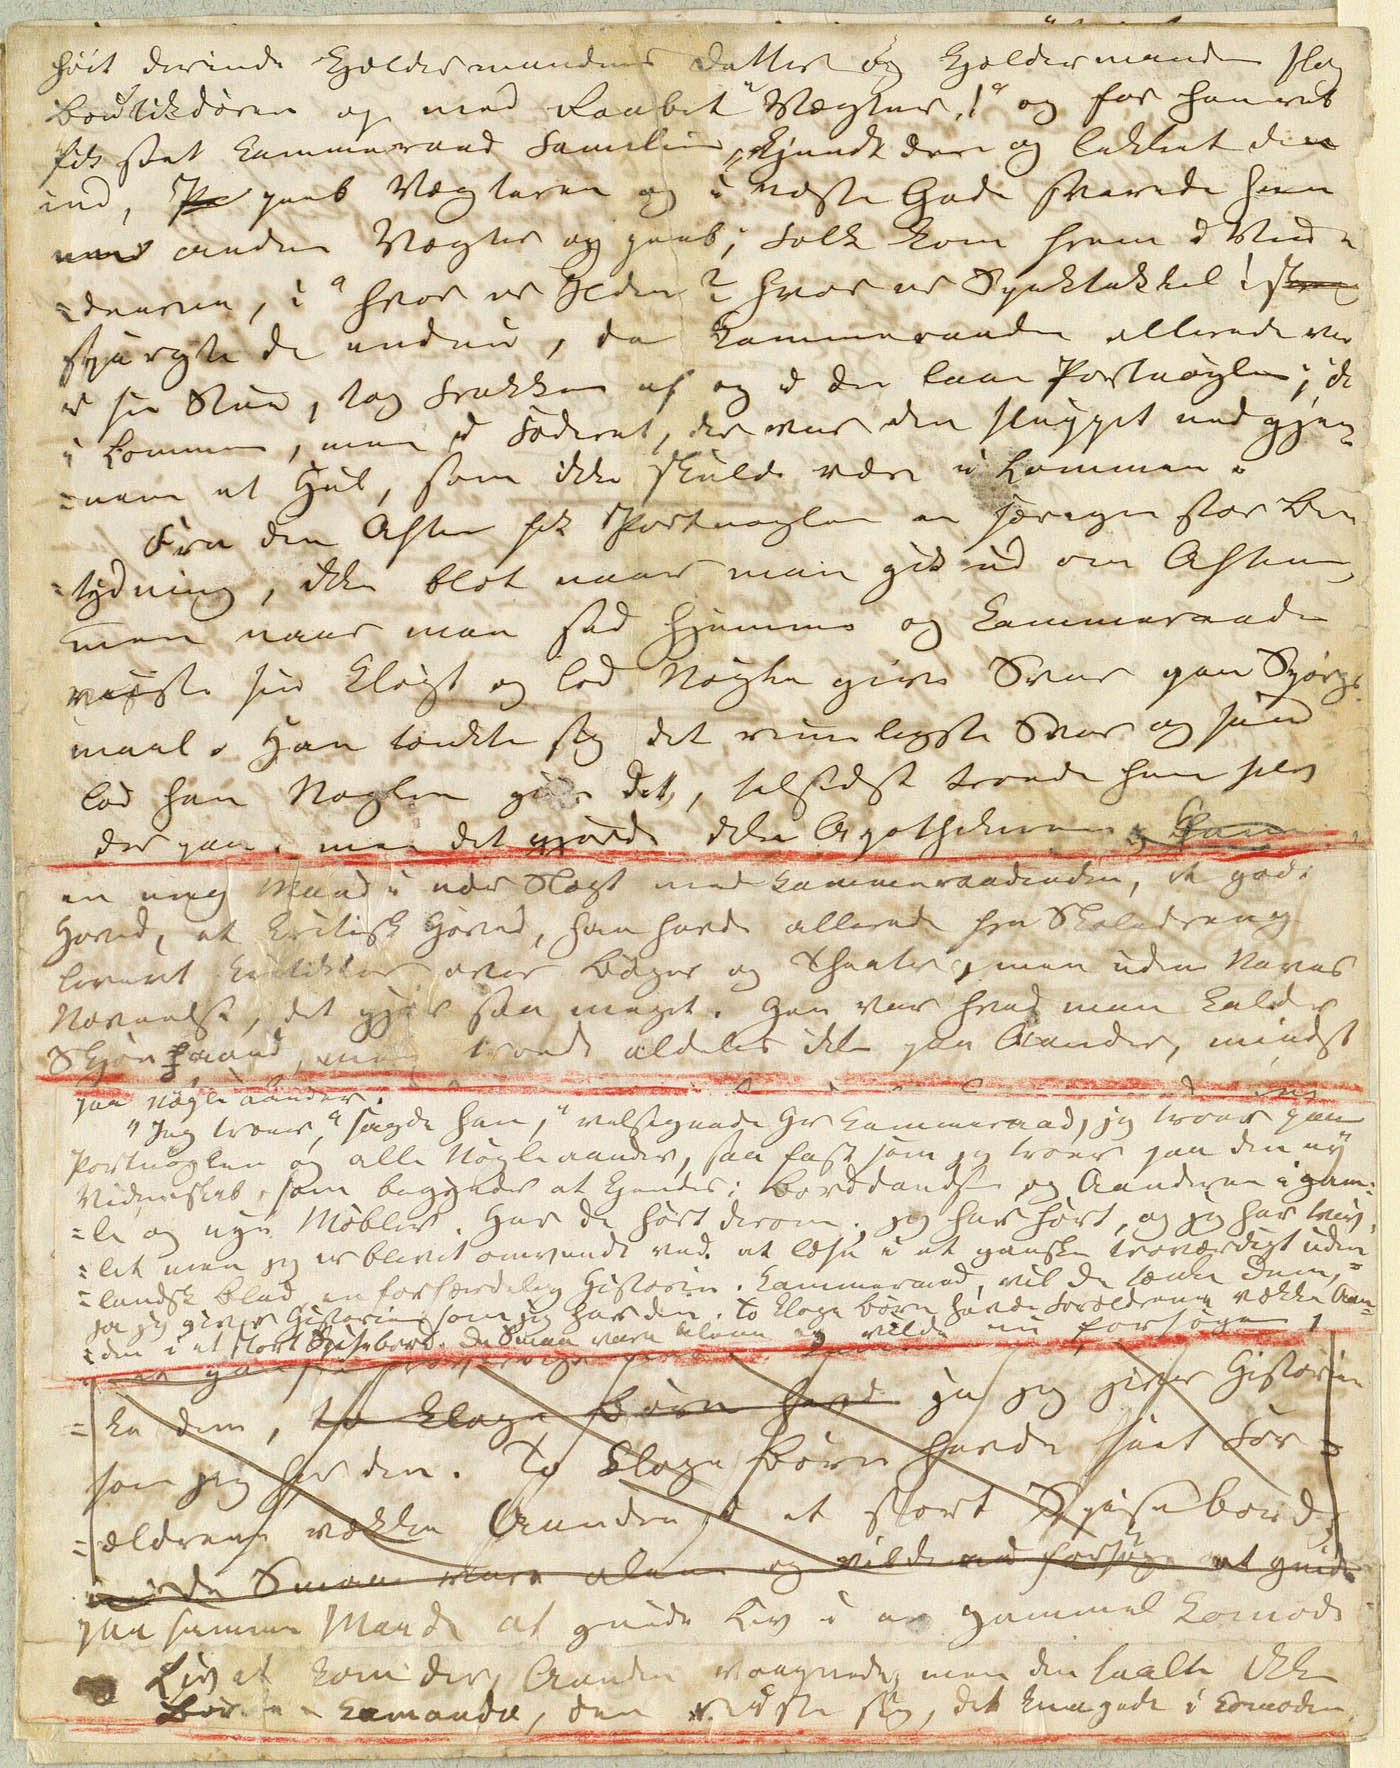 høit derinde Kjeldermandens Datter og Kjeldermanden slog
Boutikdøren op med Raabet "Vægter!" og før han ret
fik seet Kammerraad Familien, kjendt dem og lukket dem
ind, Pe peeb Vægteren og i næste Gade svarede ham
en anden Vægter og peeb; Folk kom frem i Vin-
=duerne, "hvor er Ilden? hvor er Spektakkel!
spurgte de endnu, da Kammerraaden allerede var
i sin Stue, tog Frakken af og i den laae Portnøglen; ikke
i Lommen, men i Foderet, der var den sluppet ned gjen-
=nem et Hul, som ikke skulde være i Lommen.
Fra den Aften fik Portnøglen en særegen stor Be
=tydning, ikke blot naar man gik ud om Aftenen,
men naar man sad hjemme og Kammerraaden
viiste sin Kløgt og lod Nøglen give Svar paa Spørgs-
maal. Han tænkte sig det rimeligste Svar og saa
lod han Nøglen give det, tilsidst troede han selv
derpaa; men det gjorde ikke Apothekeren,
en ung Mand i nær Slægt med Kammerraadinden, et godt
Hoved, et kritisk Hoved, han havde allerede fra Skoledreng
leveret Kritikker over Bøger og Theater, men uden Navns
Nævnelse, det gjør saa meget. Han var hvad man kalder
Skjønaand, men troede aldeles ikke paa Aander, mindst
paa Nøgleaander.
"Jeg troer," sagde han, "velsignede Hr Kammerraad, jeg troer paa
Portnøglen og alle Nøgleaander, saa fast som jeg troer paa den ny
Videnskab, som begynder at kjendes: Borddandsen og Aanderne i gam-
=le og nye Møbler. Har de hørt derom. jeg har hørt, og jeg har tviv-
=let men jeg er blevet omvendt ved at læse i et ganske troværdigt uden-
=landsk Blad en forfærdelig Historie. Kammerraad, vil De tænke Dem,
ja jeg giver Historien som jeg har den. To kloge Børn havde Forældrene vække Aan-
=den i et stort Spisebord. De Smaa vare alene og vilde nu forsøge
=ke dem, to kloge Børn havde ja jeg giver Historien
som jeg har den. To kloge Børn havde seet For-
=ældrene vække Aanden i et stort Spisebord,
de Smaa vare alene og vilde nu forsøge at gnide
paa samme Maade at gnide Liv i en gammel Komode
Livet kom der, Aanden vaagnede, men den taalte ikke
Børne Comando, den reiste sig, det knagede i Comoden,